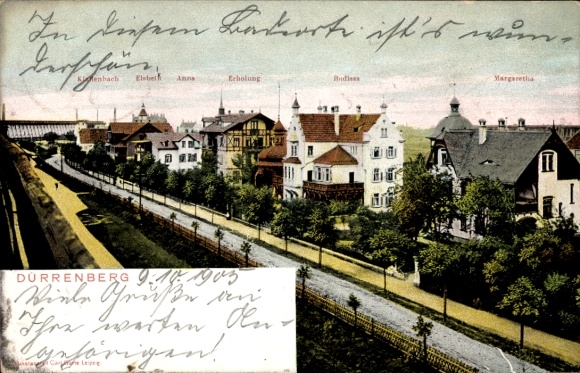 In diesem Badeorte ist's wun-
derschön!
Kirchenbach Elsbeth Anna Erholung Bodissa Margaretha
DÜRRENBERG 9.10.1905
Viele Grüße an
Ihre werten An-
gehörigen!
Carl Garte Leipzig